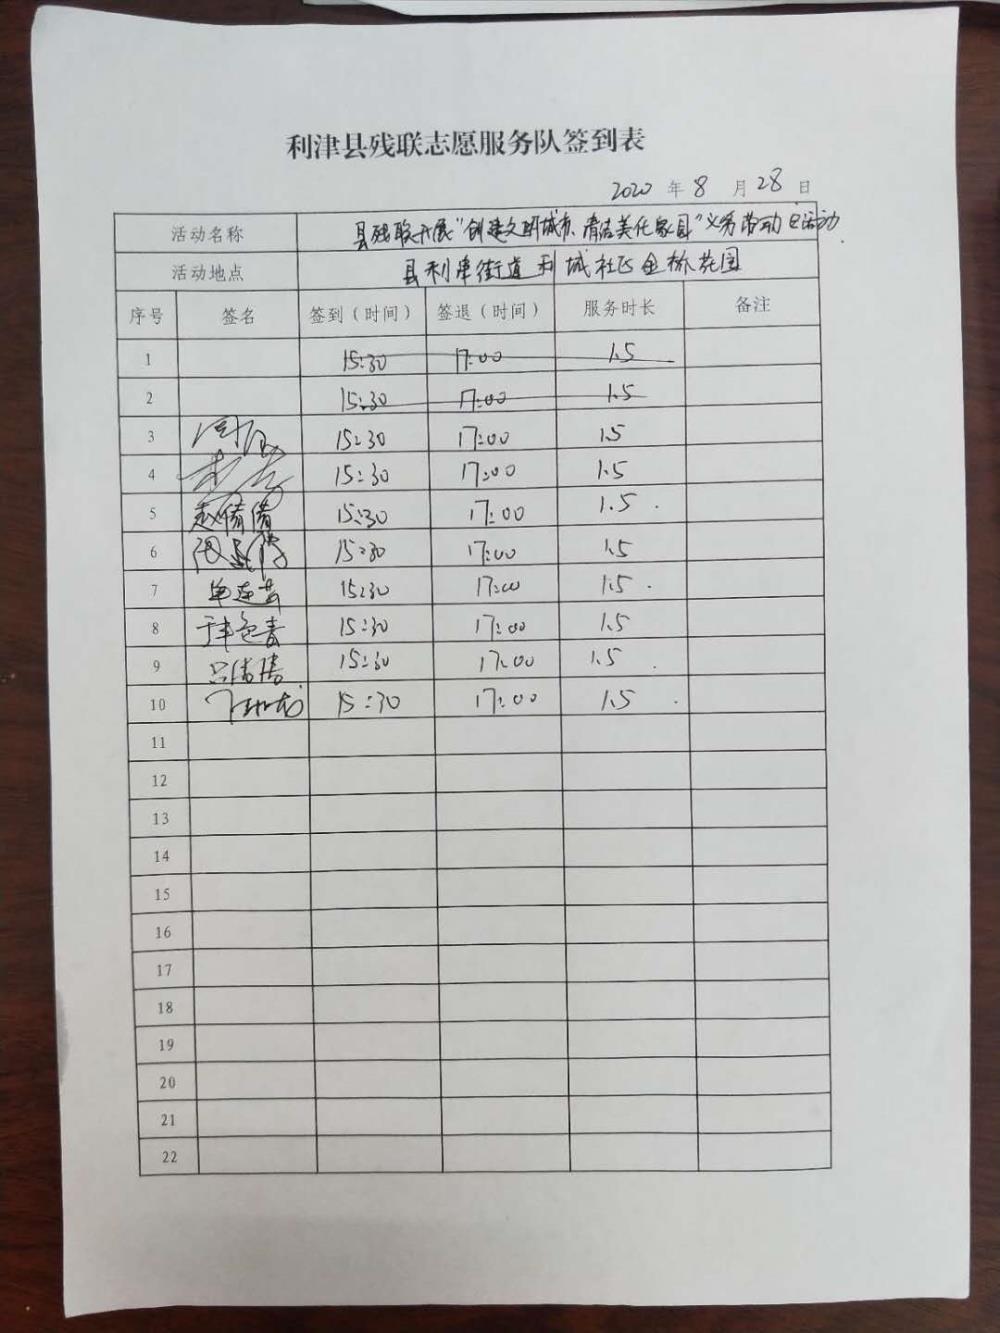 利津县残联志愿服务队签到表
2020 年 8 月 28 日
活动名称 县残联开展"创建文明城市、清洁美化家园"义务劳动 活动
活动地点 县利津街道利城社区金桥花园
序号 签名 签到（时间） 签退（时间） 服务时长 备注
1 15:30 17:00 1.5
2 15:30 17:00 1.5
3 15:30 17:00 1.5
4 15:30 17:00 1.5
5 赵倩倩 15:30 17:00 1.5
6 15:30 17:00 1.5
7 15:30 17:00 1.5
8 15:30 17:00 1.5
9 15:30 17:00 1.5
10 15:30 17:00 1.5
11
12
13
14
15
16
17
18
19
20
21
22